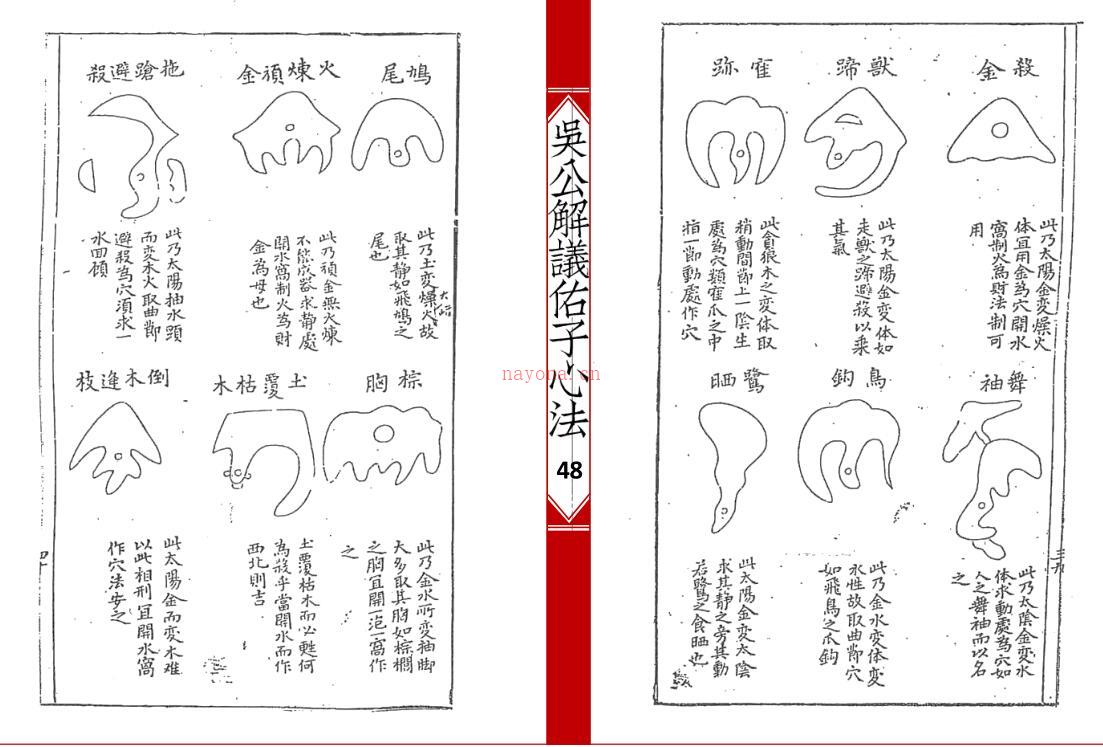 殺金
此乃太陽金變燥火
体宜用金為穴開水
窩制火為財法制可
用
獸蹄
此乃太陽金變体如
走獸之蹄避殺以乘
其氣
寉跡
此貪狼木之變体取
稍動間節上一陰生
處為穴類寉爪之中
指一節動處作穴
舞袖
此乃太陰金變水
体求動處為穴如
人之舞袖而以名
之
鳥鈎
此乃金水變体變
水性故取曲節穴
如飛鳥之爪鈎
鷺晒
此太陽金變太陰
求其靜之旁其動
若鷺之食晒也
三九
吳公解議佑子心法
48
nayona.cn
鳩尾
此乃土変燥火故
取其靜如飛鳩之
尾也
火煉項金
此乃項金無火煉
不能成器求靜處
開水窩制火為財
金為母也
拖蹌避殺
此乃太陽抽水頭
而変木火取曲節
避殺為穴須求一
水回頋
棕胸
此乃金水所変袖脚
大多取其胸如棕櫚
之胸宜開一泡一窩作
之
土覆枯木
土覆枯木而必甦何
為殺乎當開水而作
西北則吉
倒木逢枝
此太陽金而変木难
以此相刑宜開水窩
作穴法安之